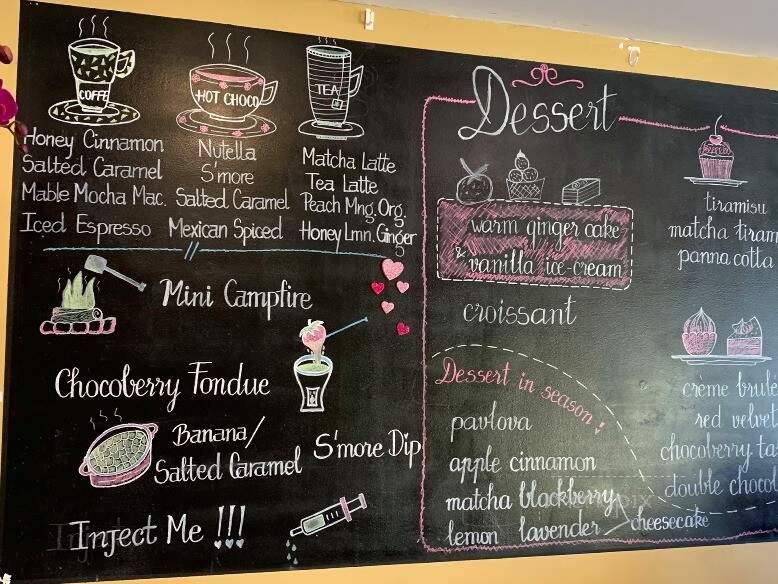 COFFE
HOT CHOCO
TEA
Honey Cinnamon
Salted Caramel
Mable Mocha Mac.
Iced Espresso
Nutella
S'more
Salted Caramel
Mexican Spiced
Matcha Latte
Tea Latte
Peach Mng. Org.
Honey Lmn. Ginger
Mini Campfire
Chocoberry Fondue
Banana/
Salted Caramel
S'more Dip
Inject Me !!!
Dessert
warm ginger cake
& vanilla ice-cream
croissant
Dessert in season!
pavlova
apple cinnamon
matcha blackberry
lemon lavender
cheesecake
tiramisu
matcha tiram
panna cotta
crème brulé
red velvet
chocoberry ta
double chocol